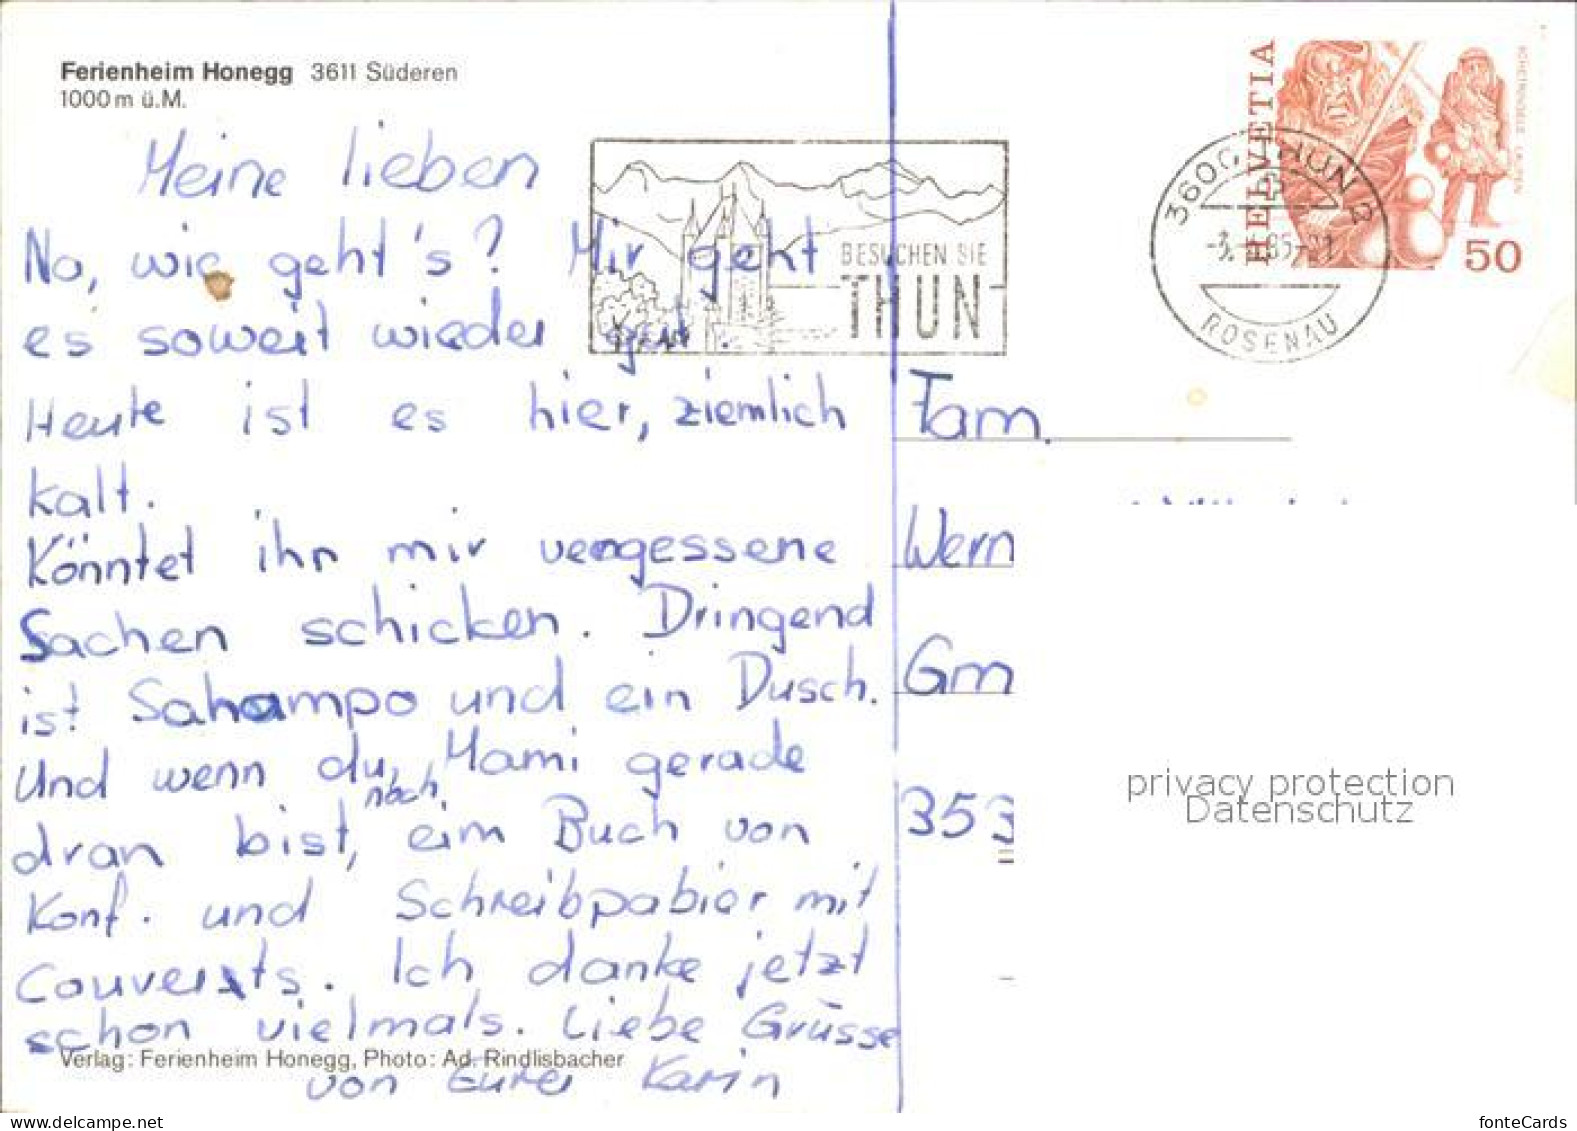 Ferienheim Honegg 3611 Süderen
1000 m ü.M.
Meine lieben
Na, wie geht's? Mir geht
es soweit wieder gut.
Heute ist es hier, ziemlich
kalt.
Könntet ihr mir vergessene
Sachen schicken. Dringend
ist Sahampo und ein Dusch.
Und wenn du, Mami gerade
dran bist, noch ein Buch von
Konf. und Schreibpabier mit
Couverts. Ich danke jetzt
schon vielmals. Liebe Grüsse
von Eurer Karin
Verlag: Ferienheim Honegg, Photo: Ad. Rindlisbacher
BESUCHEN SIE
THUN
3600 THUN 2
ROSENAU
HELVETIA
50
Fam.
Wern
Gm
353
privacy protection
Datenschutz
fonteCards
www.delcampe.net